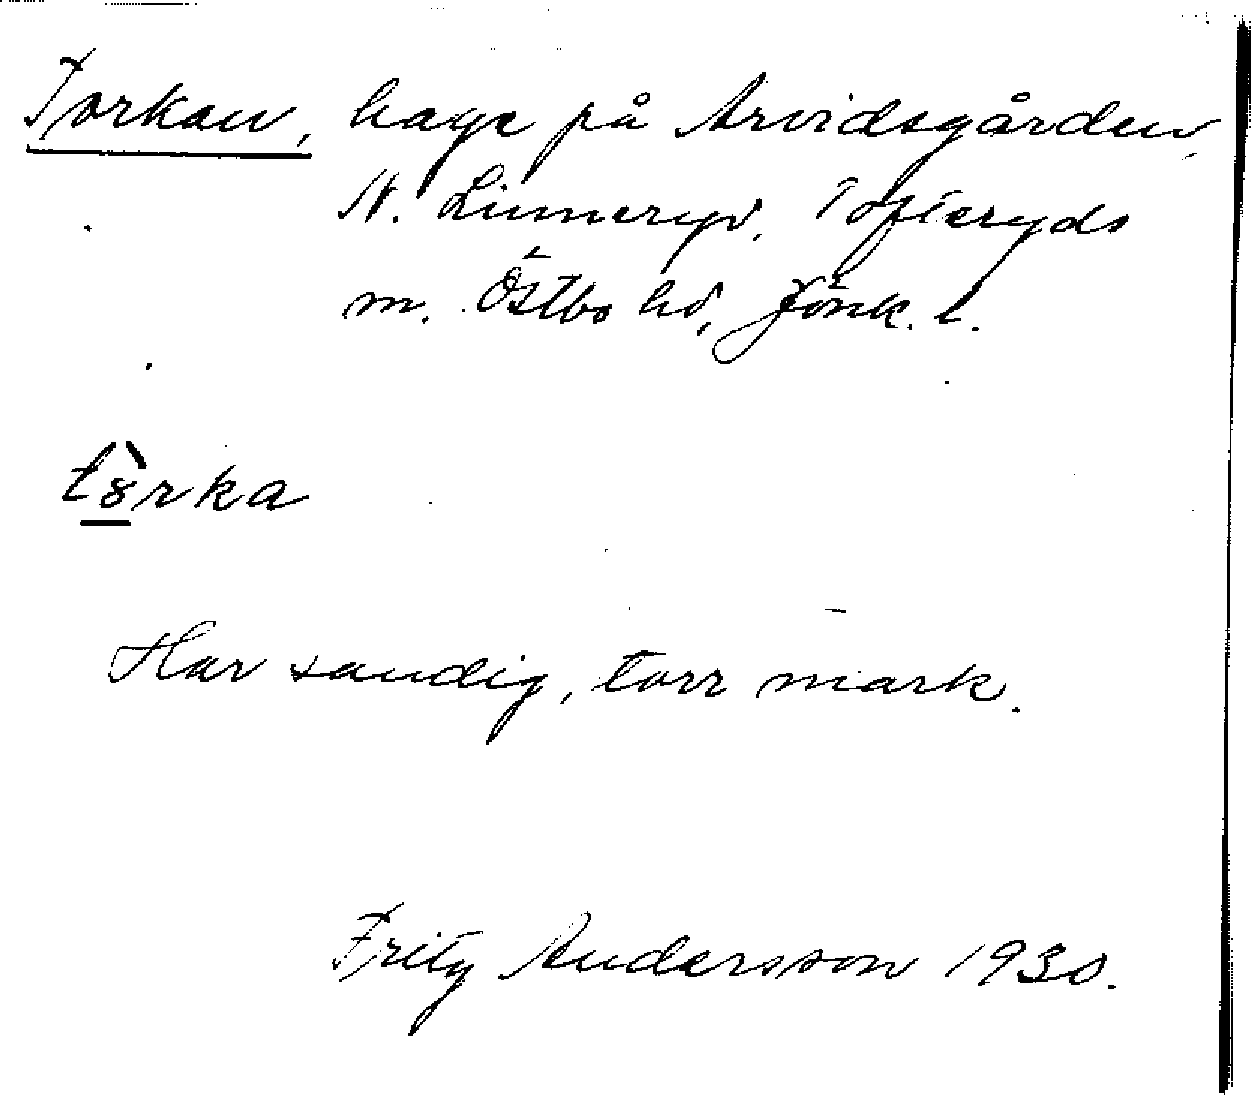 Torkan, hage på Arvidsgården,
N. Linneryd, Tofteryds
m. Östbo hd, Jönk. l.
tọ̀rka
Har sandig, torr mark.
Fritz Andersson 1930.